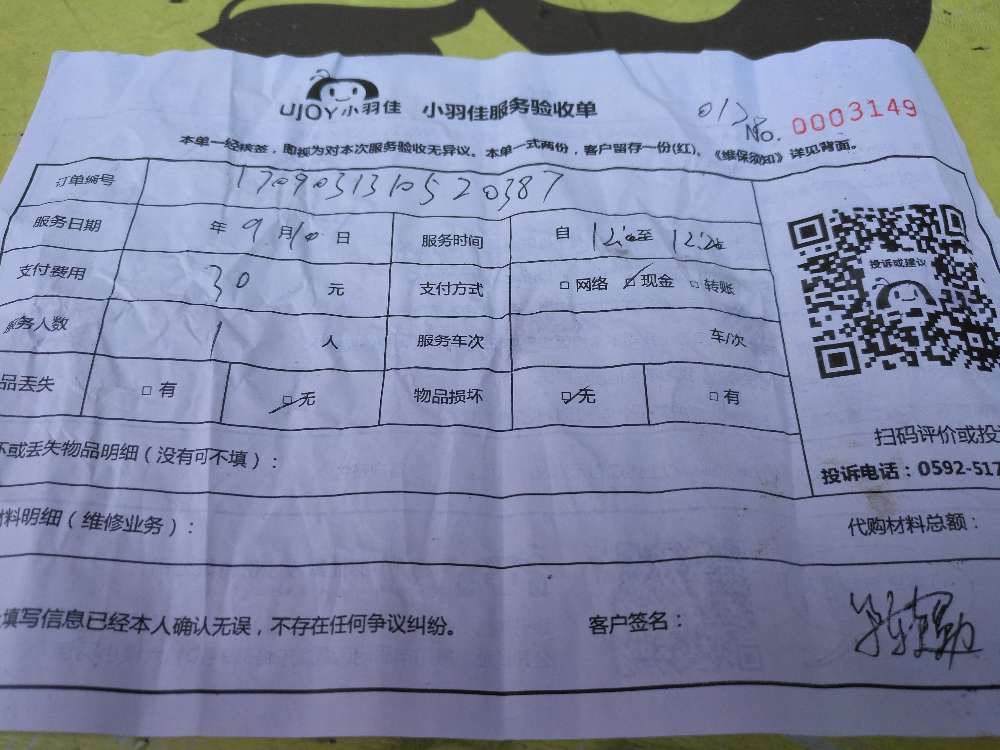 UJOY小羽佳 小羽佳服务验收单
No. 0003149
本单一经核签，即视为对本次服务验收无异议。本单一式两份，客户留存一份(红)、《维保须知》详见背面。
订单编号 1709031310520387
服务日期 年 9 月 10 日 服务时间 自 至
投诉或建议
支付费用 30 元 支付方式 □ 网络 ☑ 现金 □ 转账
服务人数 1 人 服务车次 车/次
品丢失 □ 有 ☑ 无 物品损坏 ☑ 无 □ 有
坏或丢失物品明细（没有可不填）：
扫码评价或投
投诉电话：0592-517
材料明细（维修业务）： 代购材料总额：
填写信息已经本人确认无误，不存在任何争议纠纷。 客户签名：